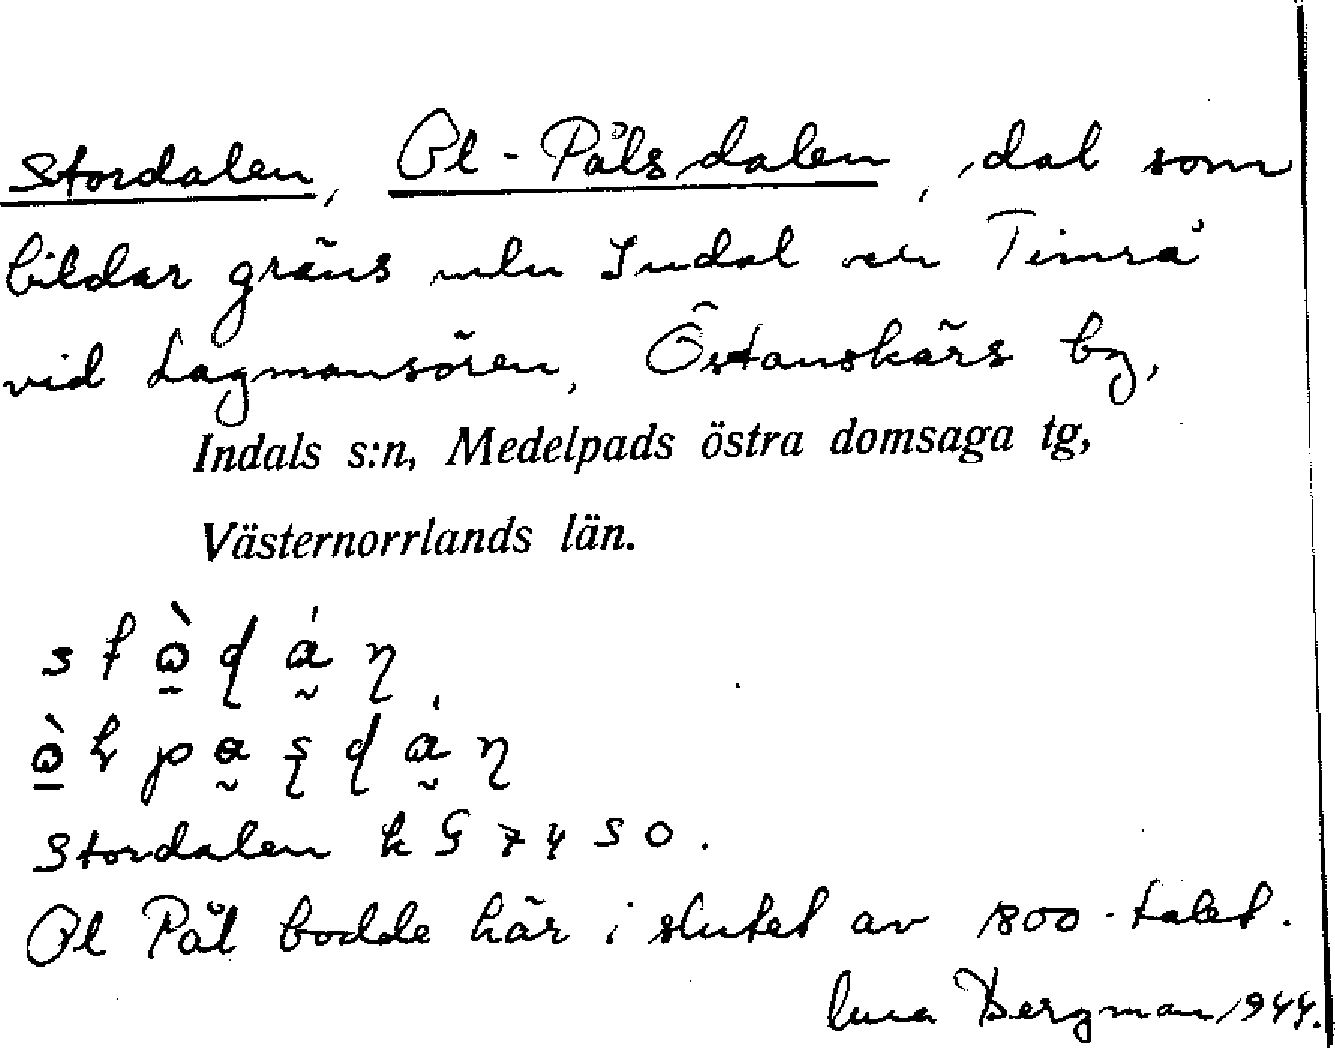 Stordalen, Ol-Påls dalen, dal som
bildar gräns mln Indal och Timrå
vid Lagmansören, Östanskärs by,
Indals s:n, Medelpads östra domsaga tg,
Västernorrlands län.
Stordalen k G 7450.
Ol Pål bodde här i slutet av 1800-talet.
Bergman 1944.